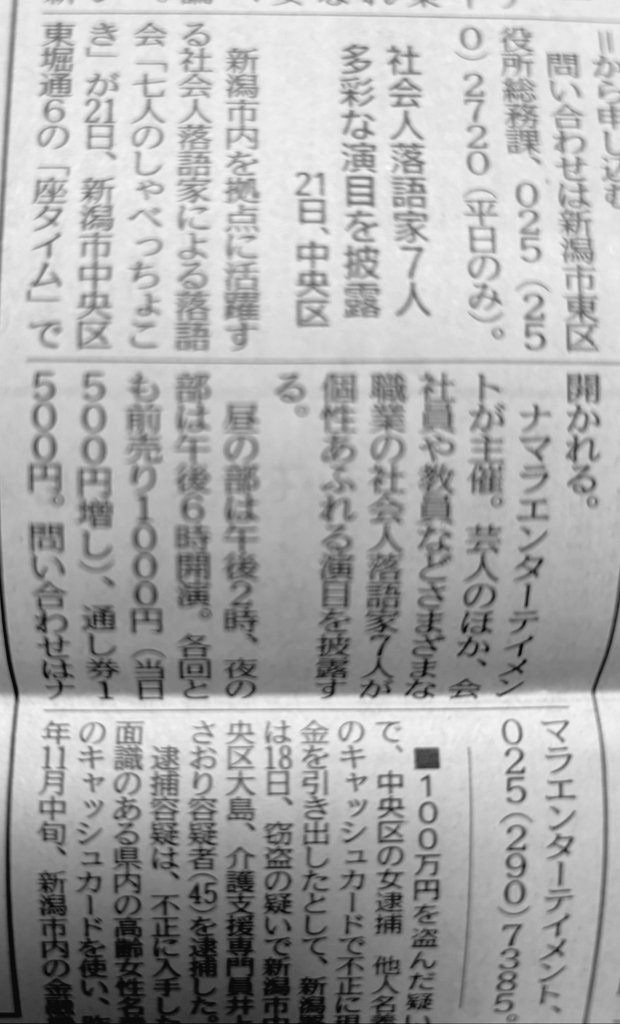 ＝から申し込む
問い合わせは新潟市東区
役所総務課、025（25
0）2720（平日のみ）。
社会人落語家7人
多彩な演目を披露
21日、中央区
新潟市内を拠点に活躍す
る社会人落語家による落語
会「七人のしゃべっちょこ
き」が21日、新潟市中央区
東堀通6の「座タイム」で
開かれる。
ナマラエンターテイメン
トが主催。芸人のほか、会
社員や教員などさまざまな
職業の社会人落語家7人が
個性あふれる演目を披露す
る。
昼の部は午後2時、夜の
部は午後6時開演。各回と
も前売り1000円（当日
500円増し）、通し券1
500円。問い合わせはナ
マラエンターテイメント、
025（290）7385。
■100万円を盗んだ疑い
で、中央区の女逮捕　他人名義
のキャッシュカードで不正に現
金を引き出したとして、新潟署
は18日、窃盗の疑いで新潟市中
央区大島、介護支援専門員井上
さおり容疑者(45)を逮捕した。
逮捕容疑は、不正に入手した
面識のある県内の高齢女性名義
のキャッシュカードを使い、昨
年11月中旬、新潟市内の金融